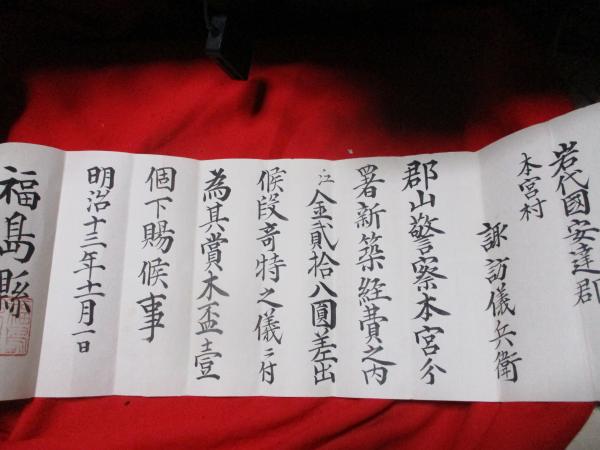 岩代國安達郡
本宮村
諏訪儀兵衛
郡山警察本宮分
署新築経費之内
江金貳拾八圓差出
候段竒特之儀ニ付
為其賞木盃壹
個下賜候事
明治十三年十一月一日
福島縣